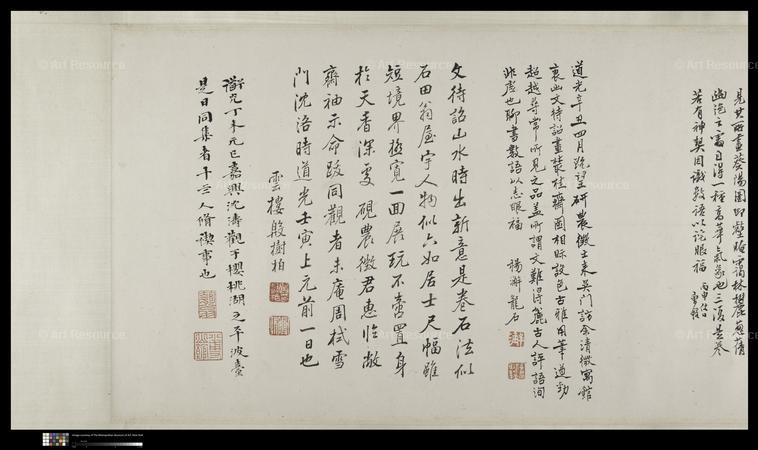 見其所畫葵陽圖卬壑晻靄林樾蔥蒨
幽浥之處自得一種高華氣象也三復是卷
若有神契因識數語以說眼福
丙申
道光辛丑四月既望研農徵士来吳門訪余清徽寓館
裏出文待詔畫叢桂齋圖相眎設色古雅用筆遒勁
超越尋常所見之品盖所謂文難得麤古人評語洵
非虛也聊書數語以志眼福 龍石
文待詔山水時出新意是卷石法似
石田翁屋宇人物似六如居士尺幅雖
短境界極寬一面展玩不啻置身
於天香深處硯農徵君惠臨敝
齋袖示命跋同觀者未庵周栻雪
門沈洛時道光壬寅上元前一日也
雲樓殷樹柏
道光丁未元巳嘉興沈濤觀于櫻桃湖之平波臺
是日同集者十三人脩禊事也
© Art Resource
© Art Resource
© Art Resource
Image courtesy of The Metropolitan Museum of Art, New York